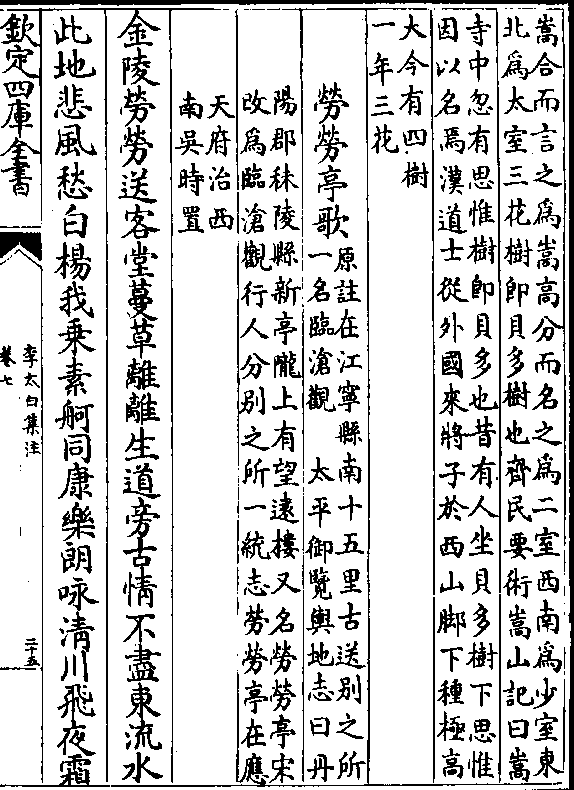 嵩合而言之為嵩高分而名之為二室西南為少室東
北為太室三花樹即貝多樹也齊民要術嵩山記曰嵩
寺中忽有思惟樹即貝多也昔有人坐貝多樹下思惟
因以名焉漢道士從外國來將子於西山脚下種極高
大今有四樹
一年三花
勞勞亭歌
原註在江寧縣南十五里古送别之所
一名臨滄觀　太平御覽輿地志曰丹
陽郡秣陵縣新亭隴上有望遠樓又名勞勞亭宋
改為臨滄觀行人分别之所一統志勞勞亭在應
天府治西
南吳時置
金陵勞勞送客堂蔓草離離生道旁古情不盡東流水
此地悲風愁白楊我乗素舸同康樂朗咏清川飛夜霜
欽定四庫全書
李太白集注
卷七
三十五